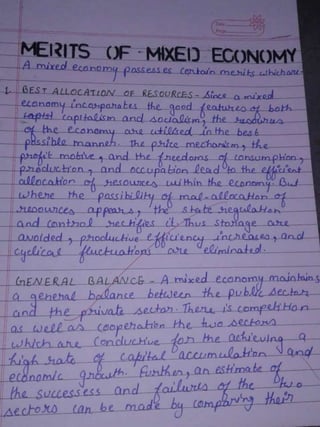 Date
Page
MERITS OF MIXED ECONOMY
A mixed economy possesses certain merits which are:
1. BEST ALLOCATION OF RESOURCES - Since a mixed
economy incorporates the good features of both
capitalism and socialism, the resources
of the economy are utilised in the best
possible manner. The price mechanism, the
profit motive, and the freedoms of consumption,
production, and occupation lead to the efficient
allocation of resources within the economy. But
where the possibility of mal-allocation of
resources appears, the state regulation
and control rectifies it. Thus storage are
avoided, productive efficiency increases, and
cyclical fluctuations are eliminated.
GENERAL BALANCE - A mixed economy maintains
a general balance between the public sector
and the private sector. There is competition
as well as cooperation the two sectors
which are conductive for the achieving a
high rate of capital accumulation and
economic growth. Further, an estimate of
the successess and failures of the two
sectors can be made by comparing their